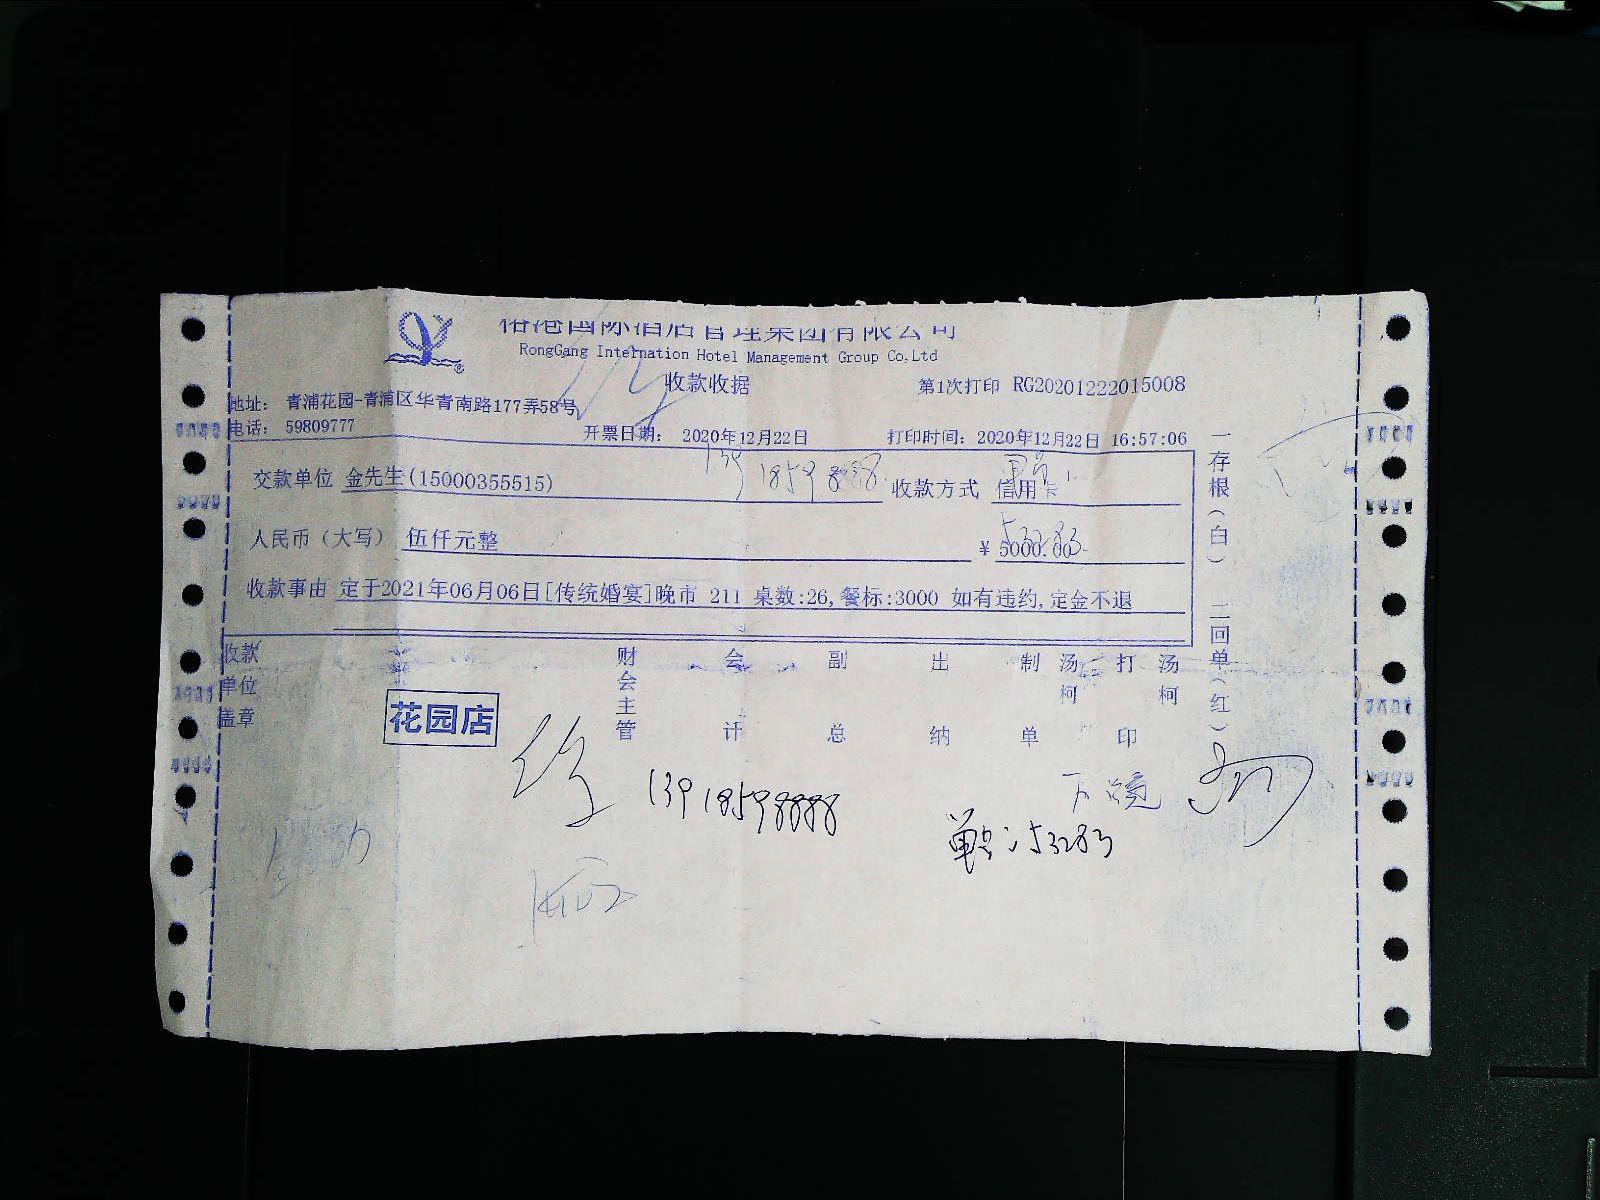 榕港国际酒店管理集团有限公司
RongGang Internation Hotel Management Group Co,Ltd
收款收据
第1次打印 RG20201222015008
地址： 青浦花园-青浦区华青南路177弄58号
电话： 59809777
开票日期： 2020年12月22日 打印时间：2020年12月22日 16:57:06
交款单位 金先生(15000355515) 收款方式 信用卡
139 1859 8888
人民币（大写） 伍仟元整 ￥ 5000.00
53283
收款事由 定于2021年06月06日[传统婚宴]晚市 211 桌数:26,餐标:3000 如有违约,定金不退
收款单位盖章
财会主管 会计 副总 出纳 制单 汤柯 打印 汤柯
一存根（白） 二回单（红）
花园店
13918598888
53283